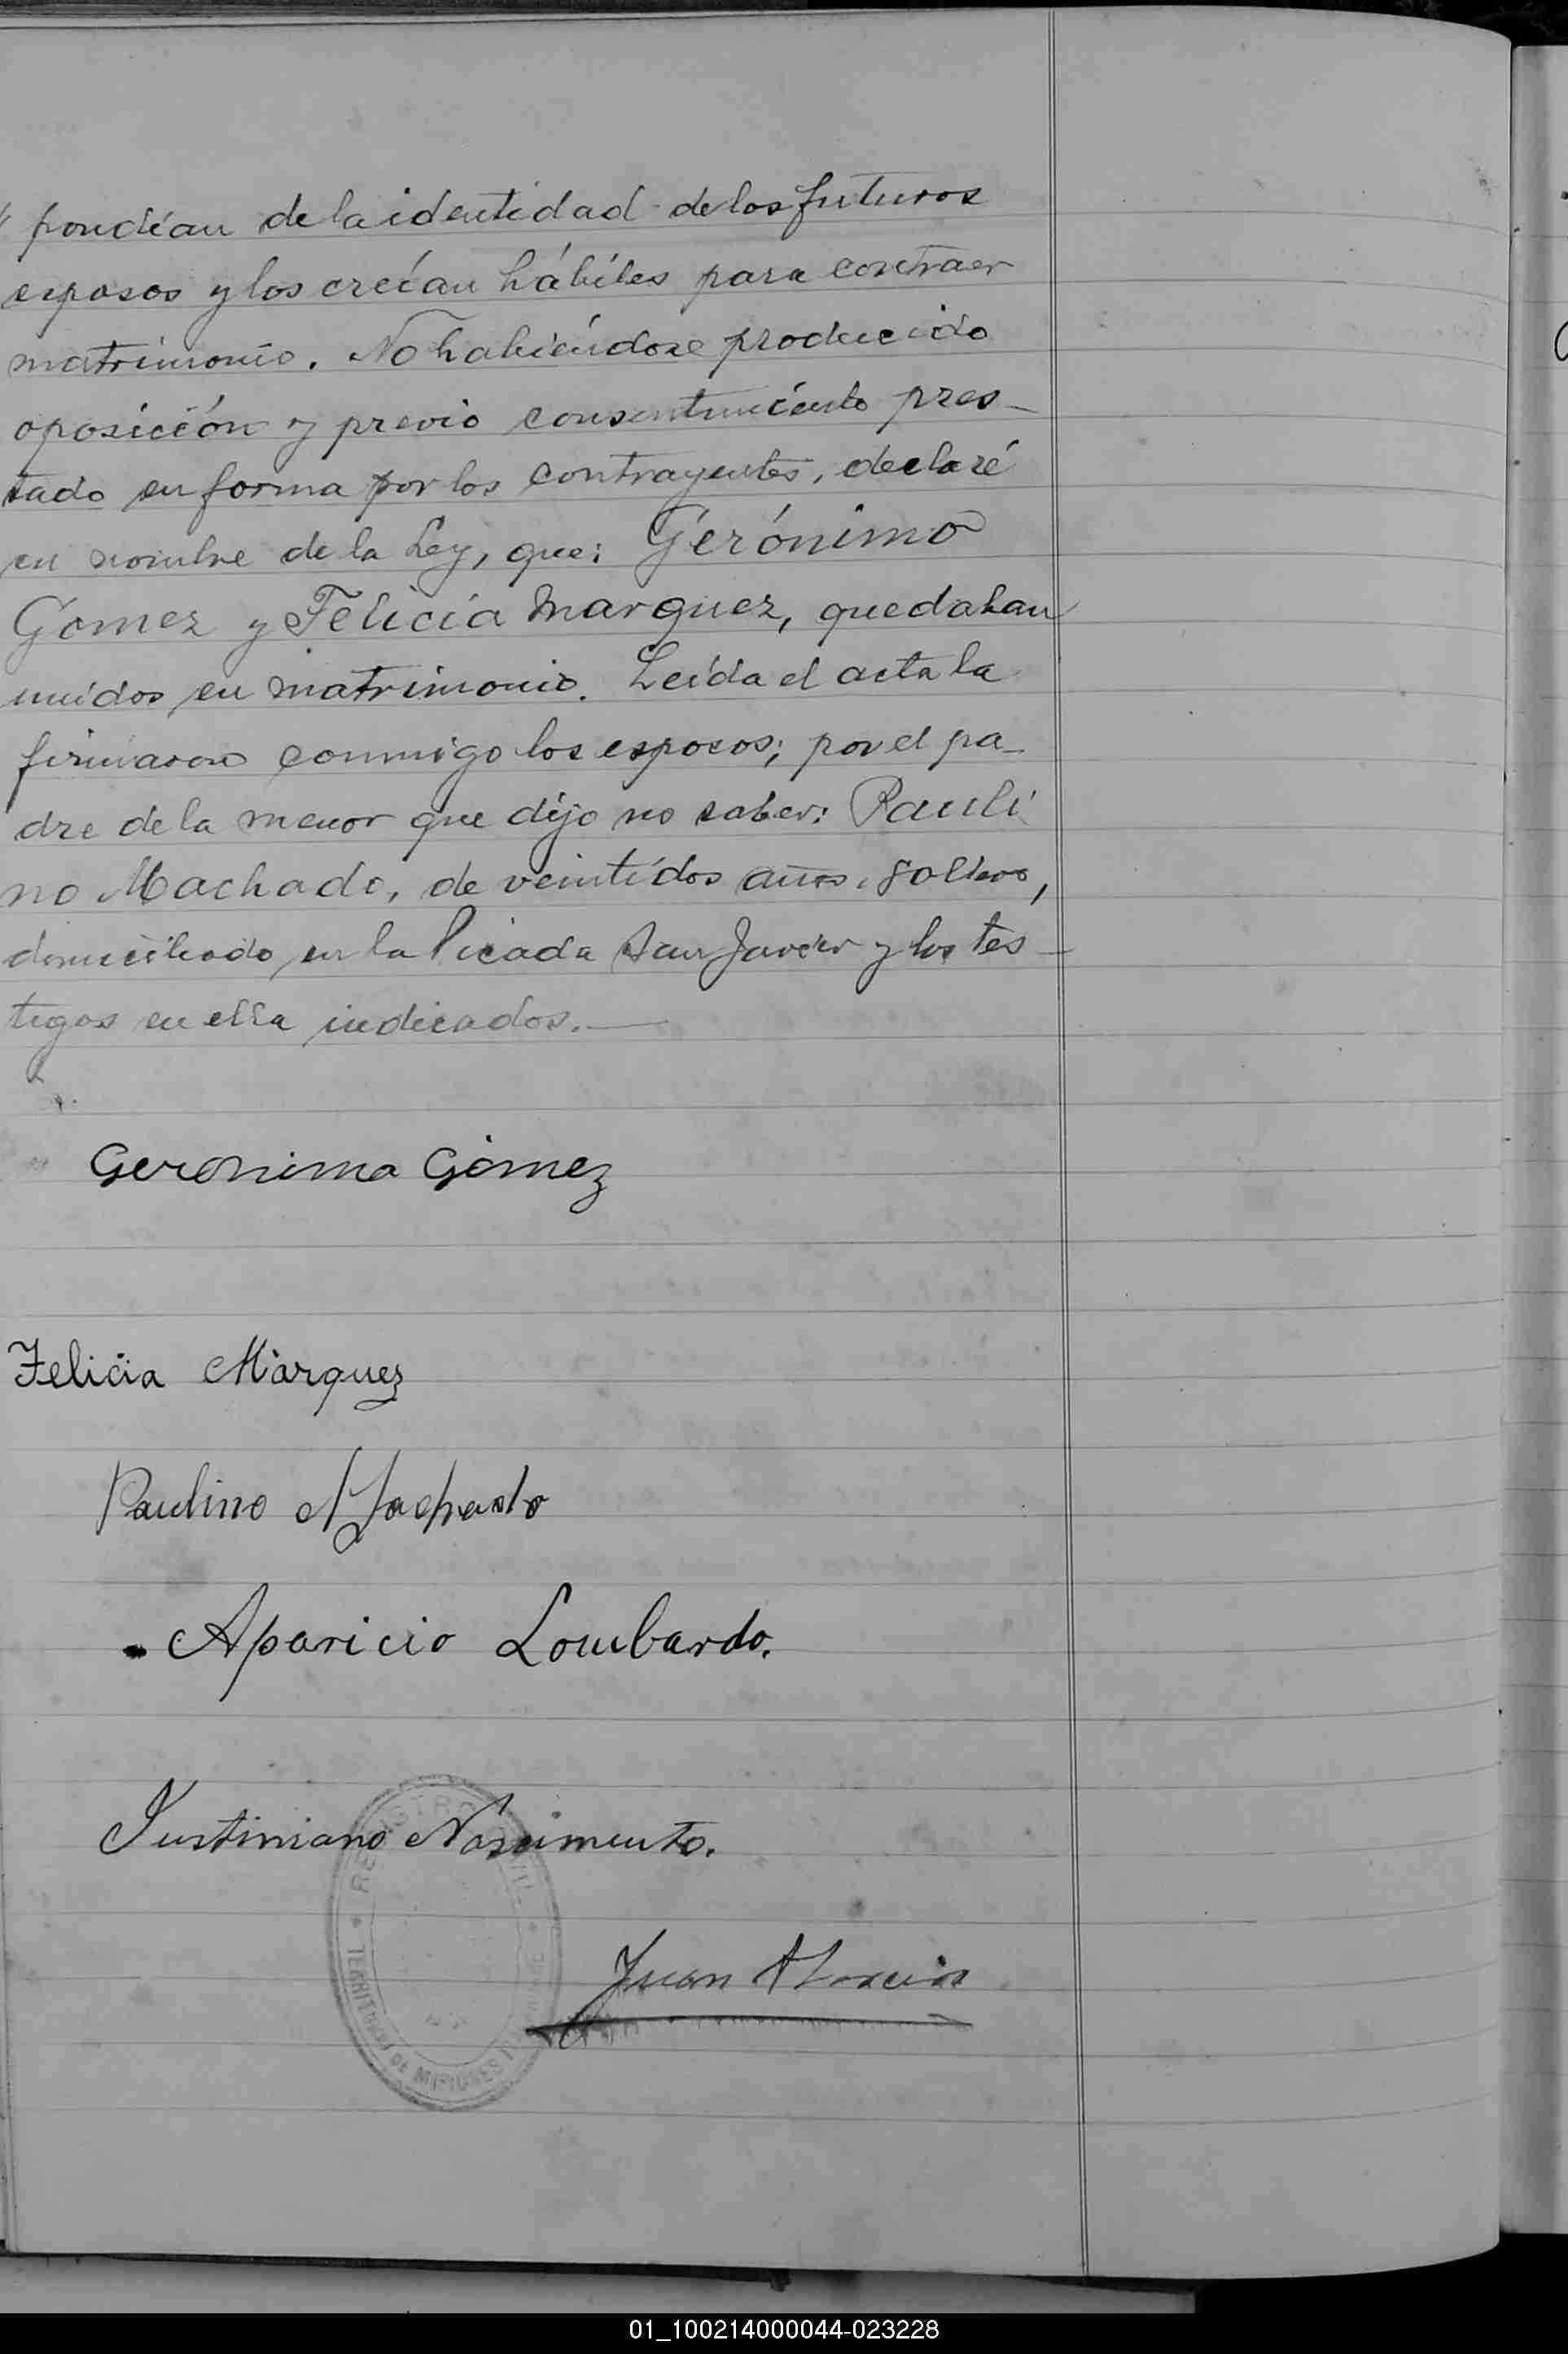 " pondían de la identidad de los futuros
esposos y los creían hábiles para contraer
matrimonio. No habiéndose producido
oposición y previo consentimiento pres-
tado en forma por los contrayentes, declaré
en nombre de la Ley, que: Gerónimo
Gómez y Felicia Marquez, quedaban
unidos en matrimonio. Leída el acta la
firmaron conmigo los esposos; por el pa-
dre de la menor que dijo no saber: Pauli
no Machado, de veintidos años, soltero,
domiciliado en la Picada San Javier y los tes-
tigos en ella indicados.—
Geronimo Gómez
Felicia Márquez
Paulino Machado
Aparicio Lombardo.
Justiniano Nascimento.
REGISTRO CIVIL
TERRITORIO DE MISIONES
Juan
01_100214000044-023228